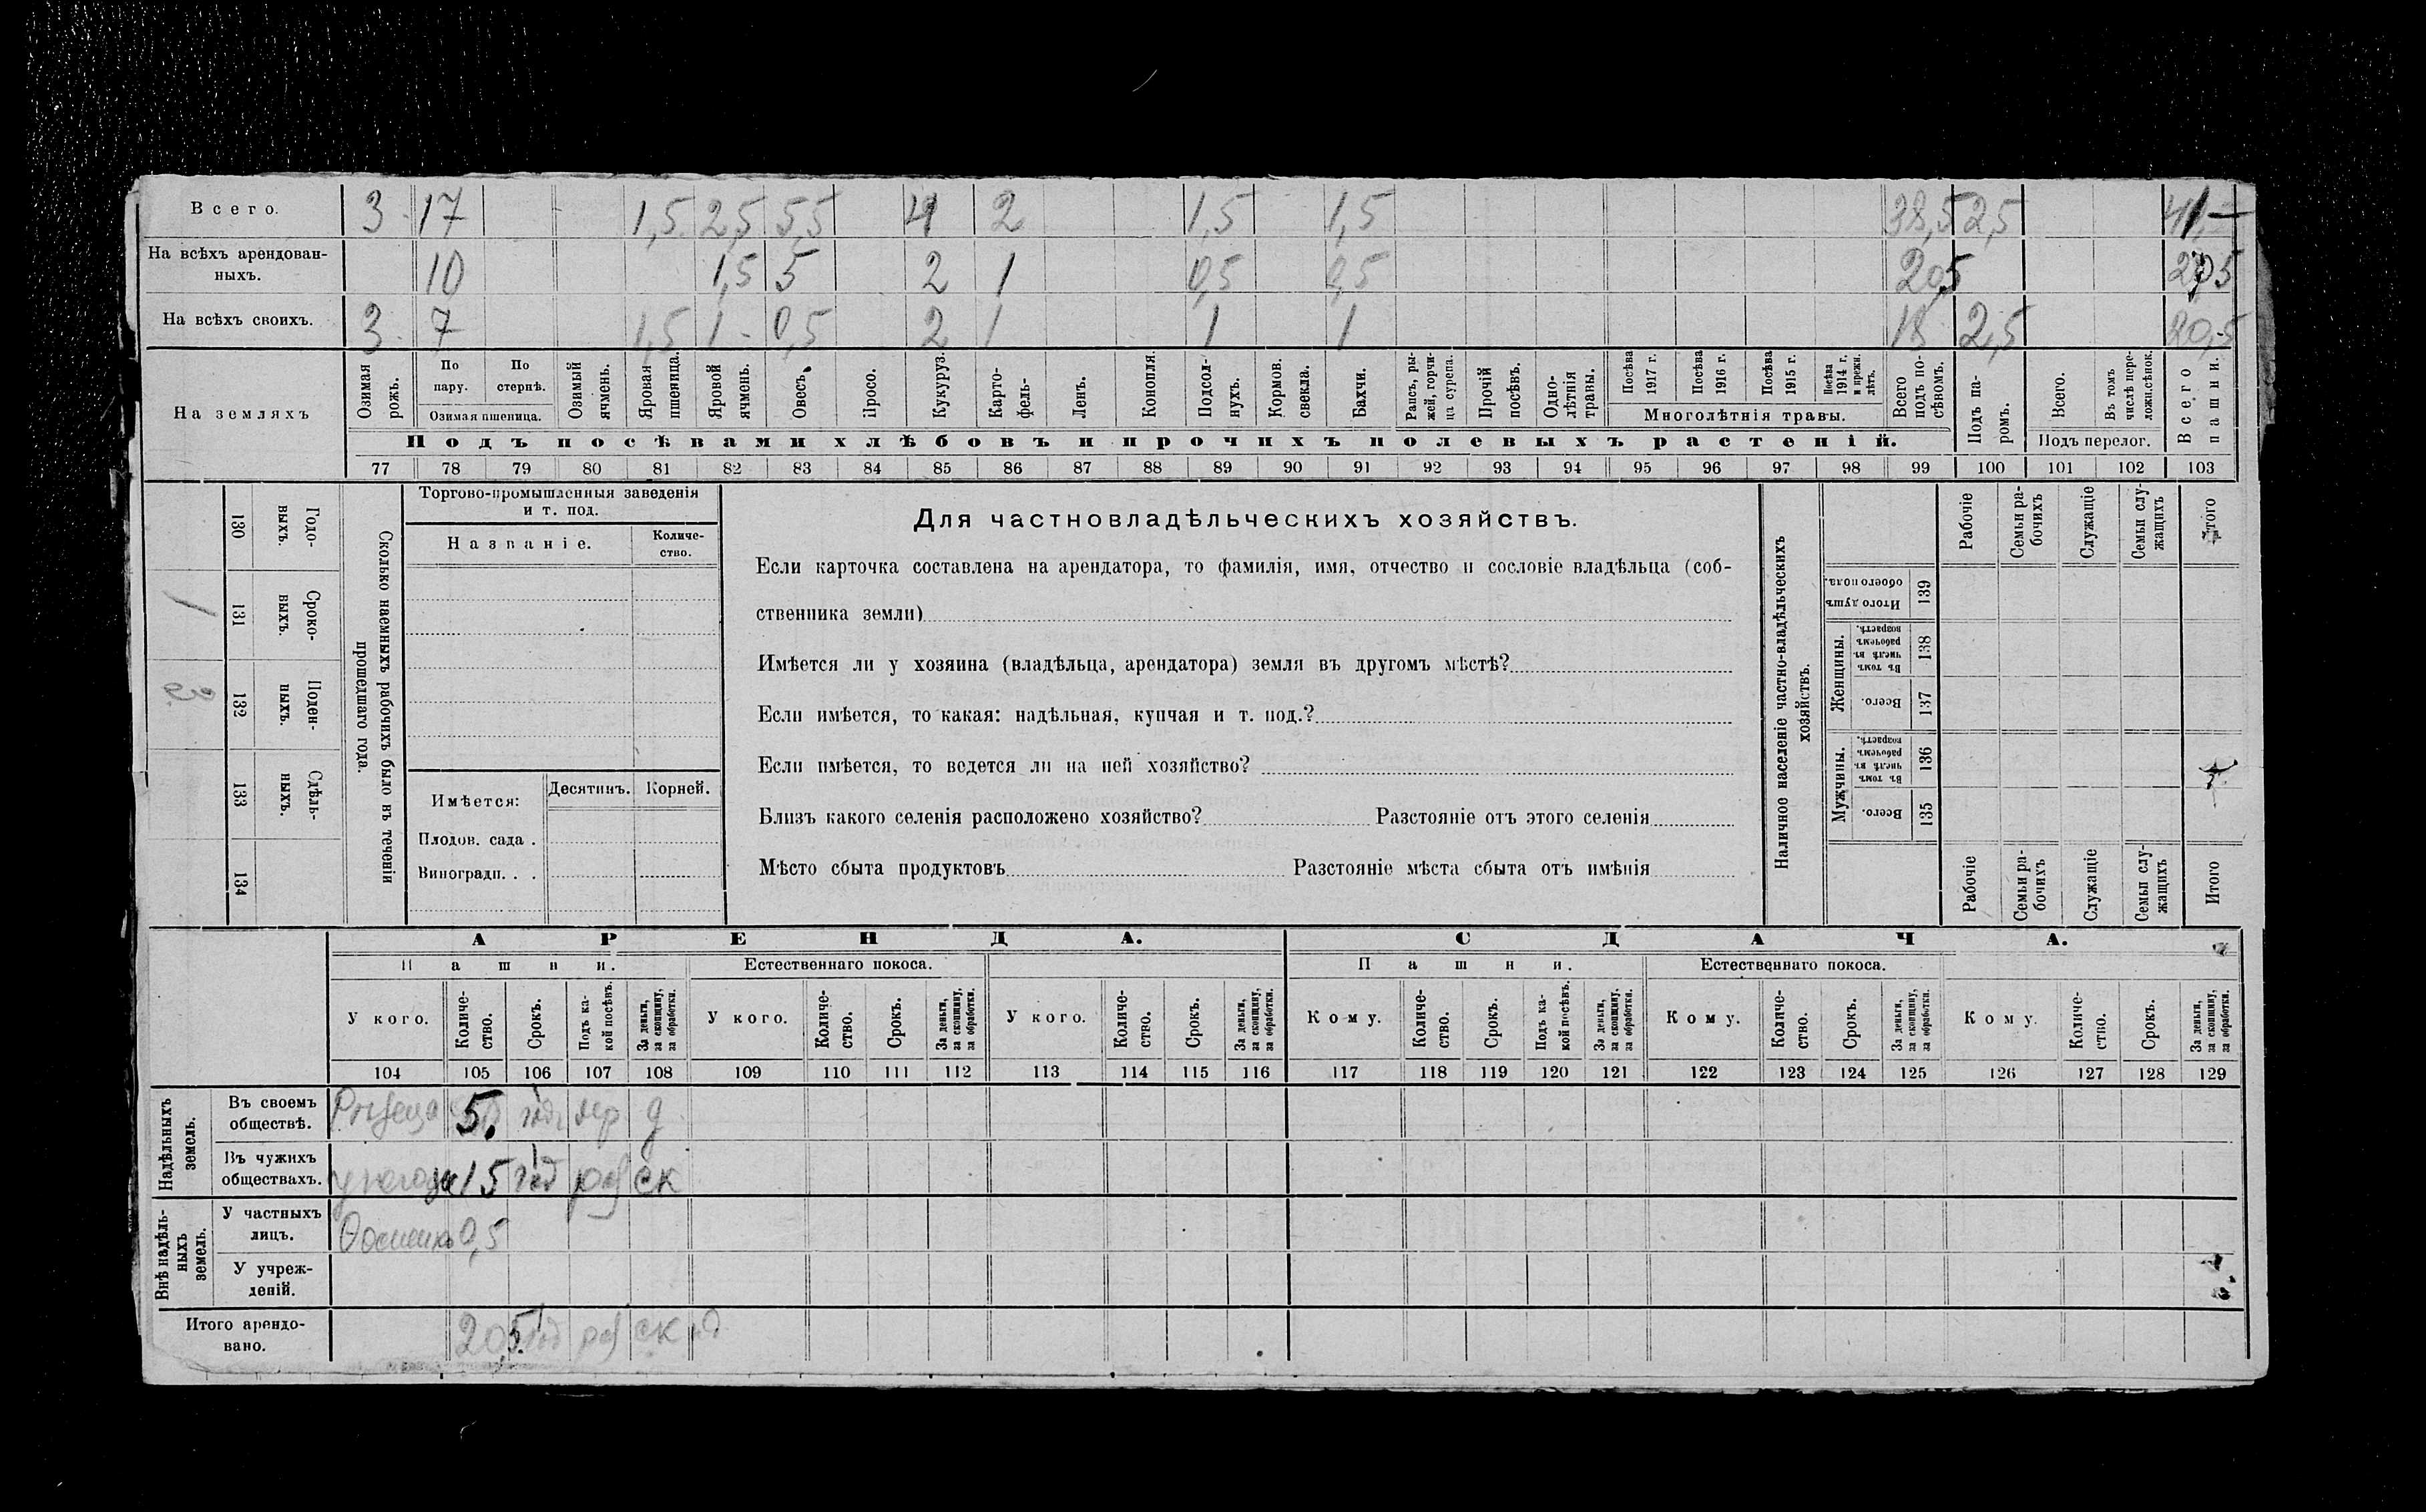 Всего. 3 17 1,5 2,5 5,5 4 2 1,5 1,5 38,5 2,5 41,—
На всѣхъ арендован-
ныхъ. 10 1,5 5 2 1 0,5 0,5 20,5 20,5
На всѣхъ своихъ. 3 7 1,5 1 0,5 2 1 1 1 18 2,5 20,5
На земляхъ
Озимая рожь.
По пару.
По стернѣ.
Озимая пшеница.
Озимый ячмень.
Яровая пшеница.
Яровой ячмень.
Овесъ.
Просо.
Кукуруз.
Карто-
фель.
Ленъ.
Конопля.
Подсол-
нухъ.
Кормов.
свекла.
Бахчи.
Рапсъ, ры-
жей, горчи-
ца сурепа.
Прочій
посѣвъ.
Одно-
лѣтнія
травы.
Посѣва 1917 г.
Посѣва 1916 г.
Посѣва 1915 г.
Посѣва 1914 г. и прежн. лѣтъ.
Многолѣтнія травы.
Всего подъ по-
сѣвомъ.
Подъ па-
ромъ.
Всего.
Въ томъ числѣ пере-
ложн.сѣнок.
Подъ перелог.
Всего пашни.
Подъ посѣвами хлѣбовъ и прочихъ полевыхъ растеній.
77 78 79 80 81 82 83 84 85 86 87 88 89 90 91 92 93 94 95 96 97 98 99 100 101 102 103
130 Годо-
выхъ.
131 Сроко-
выхъ.
132 Поден-
ныхъ.
133 Сдѣль-
ныхъ.
134
Сколько наемныхъ рабочихъ было въ теченіи
прошедшаго года.
Торгово-промышленныя заведенія
и т. под.
Названіе.
Количе-
ство.
Имѣется:
Десятинъ. Корней.
Плодов. сада .
Виноградн. . .
Для частновладѣльческихъ хозяйствъ.
Если карточка составлена на арендатора, то фамилія, имя, отчество и сословіе владѣльца (соб-
ственника земли)
Имѣется ли у хозяина (владѣльца, арендатора) земля въ другомъ мѣстѣ?
Если имѣется, то какая: надѣльная, купчая и т. под.?
Если имѣется, то ведется ли на ней хозяйство?
Близъ какого селенія расположено хозяйство? Разстояніе отъ этого селенія
Мѣсто сбыта продуктовъ Разстояніе мѣста сбыта отъ имѣнія
Наличное населеніе частно-владѣльческихъ
хозяйствъ.
Рабочіе
Семьи ра-
бочихъ
Служащіе
Семьи слу-
жащихъ
Итого
Итого душъ
обоего пола.
139
Женщины.
Въ томъ числѣ въ рабочемъ возрастѣ.
138
Всего.
137
Мужчины.
Въ томъ числѣ въ рабочемъ возрастѣ.
136
Всего.
135
Рабочіе
Семьи ра-
бочихъ
Служащіе
Семьи слу-
жащихъ
Итого
АРЕНДА. СДАЧА.
Пашни. Естественнаго покоса. Пашни. Естественнаго покоса.
У кого. Количе-
ство. Срокъ. Подъ ка-
кой посѣвъ. За деньги,
за скопщину,
за обработки.
У кого. Количе-
ство. Срокъ. За деньги,
за скопщину,
за обработки.
У кого. Количе-
ство. Срокъ. За деньги,
за скопщину,
за обработки.
Кому. Количе-
ство. Срокъ. Подъ ка-
кой посѣвъ. За деньги,
за скопщину,
за обработки.
Кому. Количе-
ство. Срокъ. За деньги,
за скопщину,
за обработки.
Кому. Количе-
ство. Срокъ. За деньги,
за скопщину,
за обработки.
104 105 106 107 108 109 110 111 112 113 114 115 116 117 118 119 120 121 122 123 124 125 126 127 128 129
Надѣльныхъ
земель.
Въ своемъ
обществѣ. 5. д
Въ чужихъ
обществахъ. 15 год ск
Внѣ надѣль-
ныхъ
земель.
У частныхъ
лицъ. 0,5
У учреж-
деній.
Итого арендо-
вано. 20,5 ск